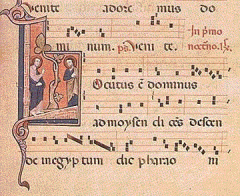 venite adore mus do
mi num. ps. Veni te. In pīmo
Locutus ē dominus
ad moysen di cēs descen
de in egyp tum dic pharao